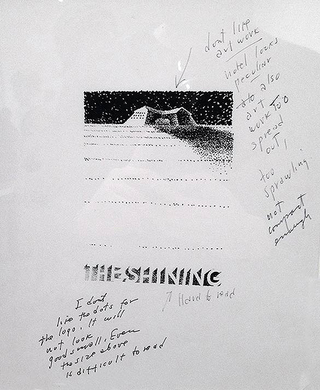 dont like
art work
hotel looks
peculiar
also
art
work too
spread
out!
too
sprawling
not
compact
enough
THE SHINING
↗ Hard to read
I dont
like the dots for
the logo. It will
not look
good small. Even
the size above
is difficult to read